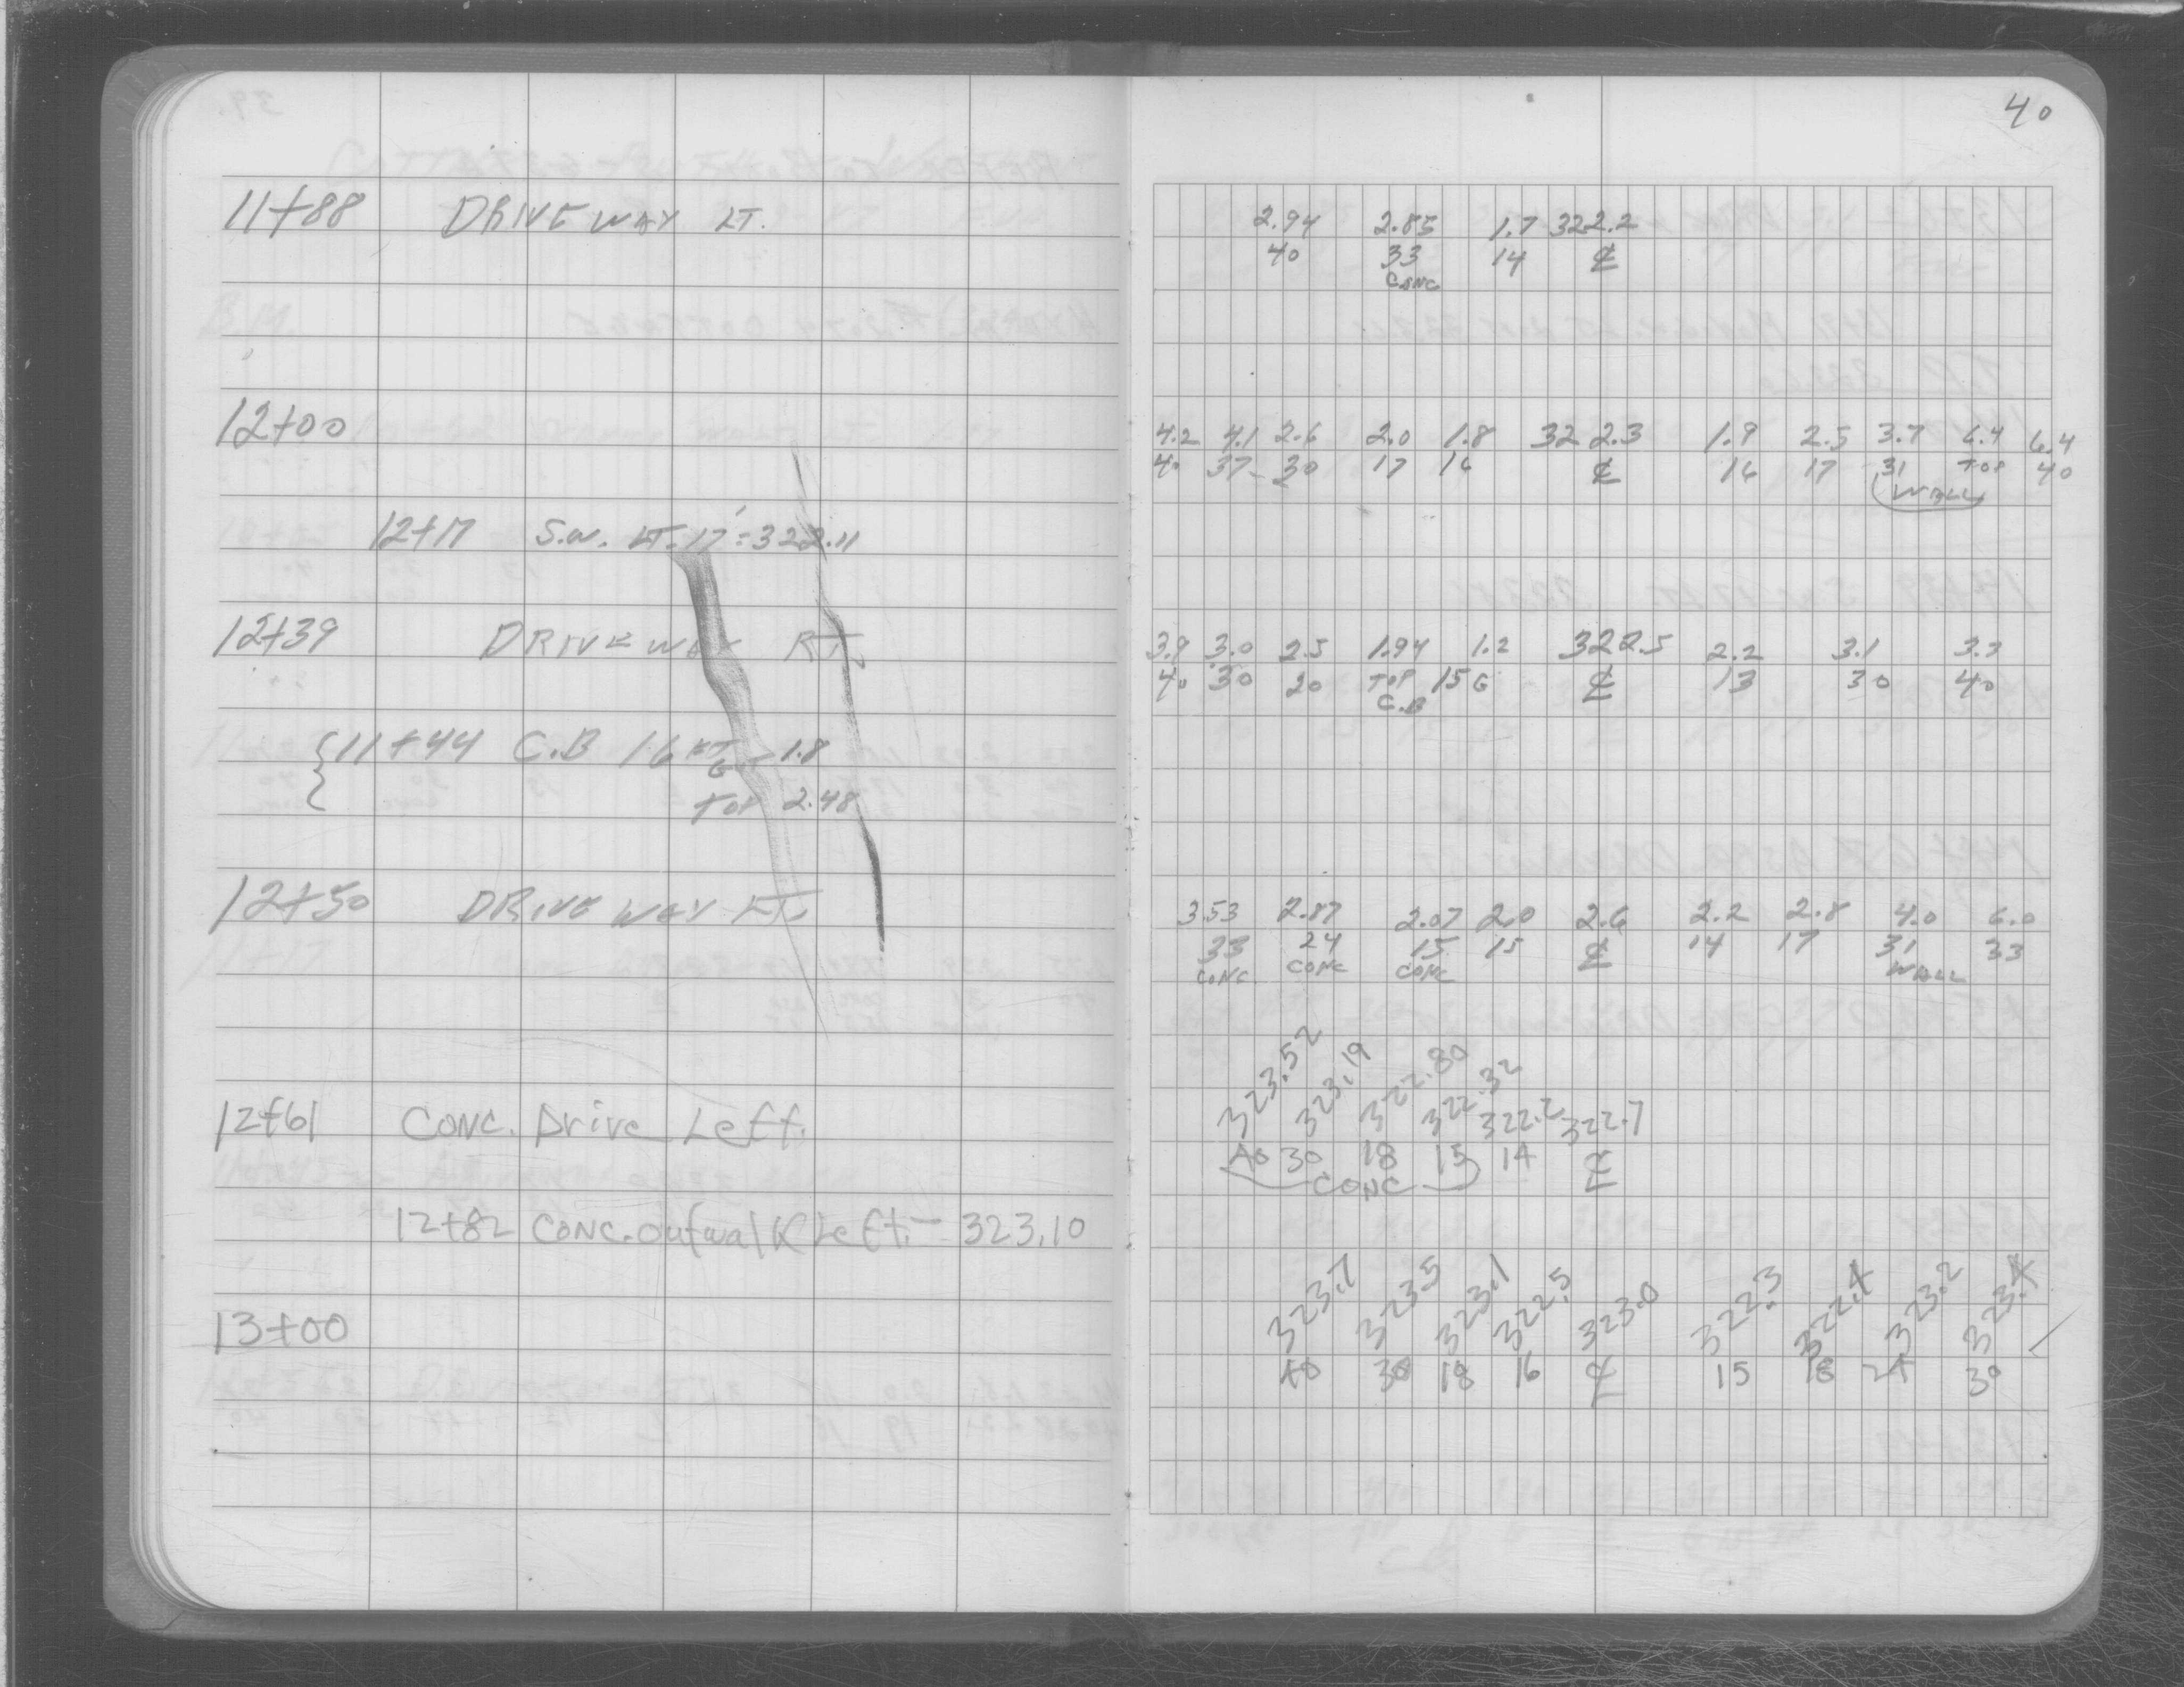 40
11+88 DRIVEWAY LT.
2.94 2.85 1.7 322.2
40 33 14 ℄
CONC
12+00
4.2 4.1 2.6 2.0 1.8 322.3 1.9 2.5 3.7 6.4 6.4
40 37 30 17 16 ℄ 16 17 31 TOP 40
WALL
12+17 S.W. LT. 17' = 322.11
12+39 DRIVEWAY RT.
3.9 3.0 2.5 1.94 1.2 322.5 2.2 3.1 3.3
40 30 20 TOP 15 G ℄ 13 30 40
C.B
11+44 C.B 16 1.8
TOP 2.48
12+50 DRIVEWAY LT.
3.53 2.87 2.07 2.0 2.6 2.2 2.8 4.0 6.0
33 24 15 15 ℄ 14 17 31 33
CONC. CONC CONC WALL
12+61 CONC. Drive Left.
323.52 323.19 322.80 322.32 322.2 322.7
40 30 18 15 14 ℄
CONC
12+82 CONC. outwalk Left. - 323.10
13+00
323.7 323.5 323.1 322.5 323.0 322.3 322.4 323.2 323.4
40 30 18 16 ℄ 15 18 24 30